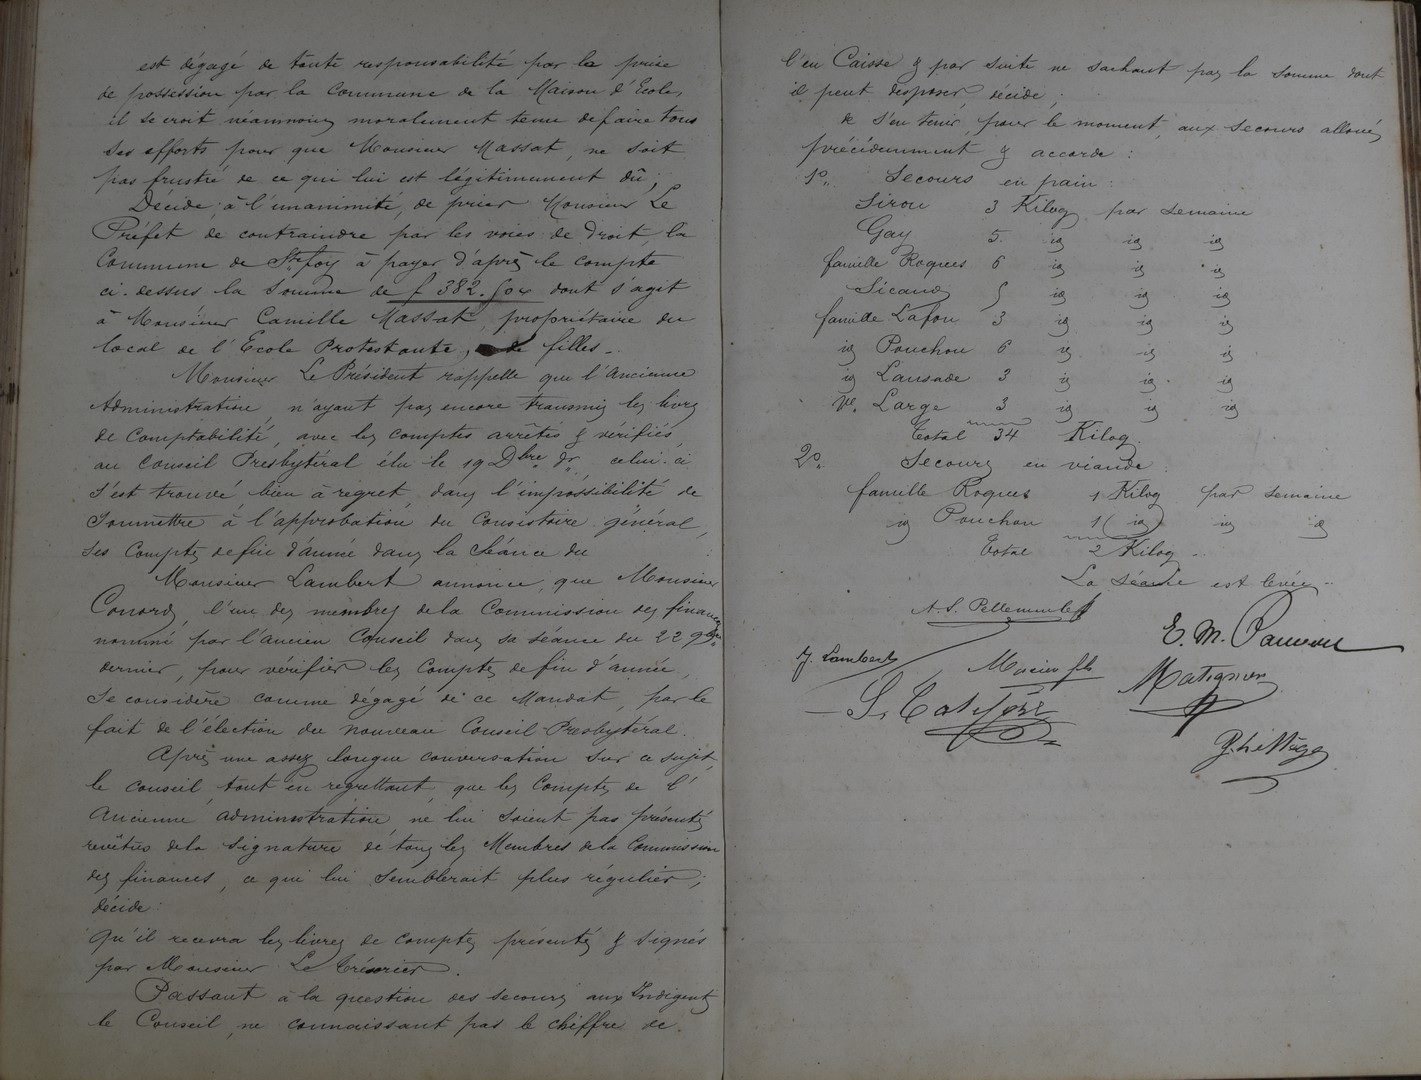 est dégagé de toute responsabilité par la prise
de possession par la Commune de la Maison d'École,
il se croit néanmoins moralement tenu de faire tous
ses efforts pour que Monsieur Massat, ne soit
pas frustré de ce qui lui est légitimement dû;
Décide, à l'unanimité, de prier Monsieur Le
Préfet de contraindre par les voies de Droit, la
Commune de Ste foy à payer d'après le compte
ci-dessus la somme de f 382. dont s'agit
à Monsieur Camille Massat, propriétaire du
local de l'École Protestante, de filles.
Monsieur Le Président rappelle que l'Ancienne
Administration, n'ayant pas encore transmis les livres
de Comptabilité, avec les comptes arrêtés & vérifiés,
au Conseil Presbytéral élu le 19 Dbre dr, celui-ci
s'est trouvé bien à regret, dans l'impossibilité de
soumettre à l'approbation du Consistoire général,
ses Comptes de fin d'année dans la Séance du
Monsieur Lambert annonce, que Monsieur
Conord, l'un des membres de la Commission des finances
nommé par l'Ancien Conseil dans sa séance du 22 9bre
dernier, pour vérifier les Comptes de fin d'année,
se considère comme dégagé de ce Mandat, par le
fait de l'élection du nouveau Conseil-Presbytéral.
Après une assez longue conversation sur ce sujet,
le conseil, tout en regrettant, que les Comptes de l'
Ancienne administration, ne lui soient pas présentés
revêtus de la signature de tous les Membres de la Commission
des finances, ce qui lui semblerait plus régulier;
décide:
Qu'il recevra les livres de comptes présentés & signés
par Monsieur Le Trésorier.
Passant à la question des secours aux Indigents
le Conseil, ne connaissant pas le chiffre de
l'en Caisse & par suite ne sachant pas la somme dont
il peut disposer, décide;
de s'en tenir, pour le moment, aux secours alloués
précédemment & accorde:
1o. Secours en pain:
Sirou 3 Kilog par semaine
Gay 5 id id id
famille Roques 6 id id id
Sicaud 5 id id id
famille Lafon 3 id id id
id Pouchou 6 id id id
id Lansade 3 id id id
Ve. Large 3 id id id
Total 34 Kilog.
2o. Secours en viande:
famille Roques 1 Kilog par semaine
id Pouchou 1 (id) id id
Total 2 Kilog
La séance est levée
J. Lambert
Matignon